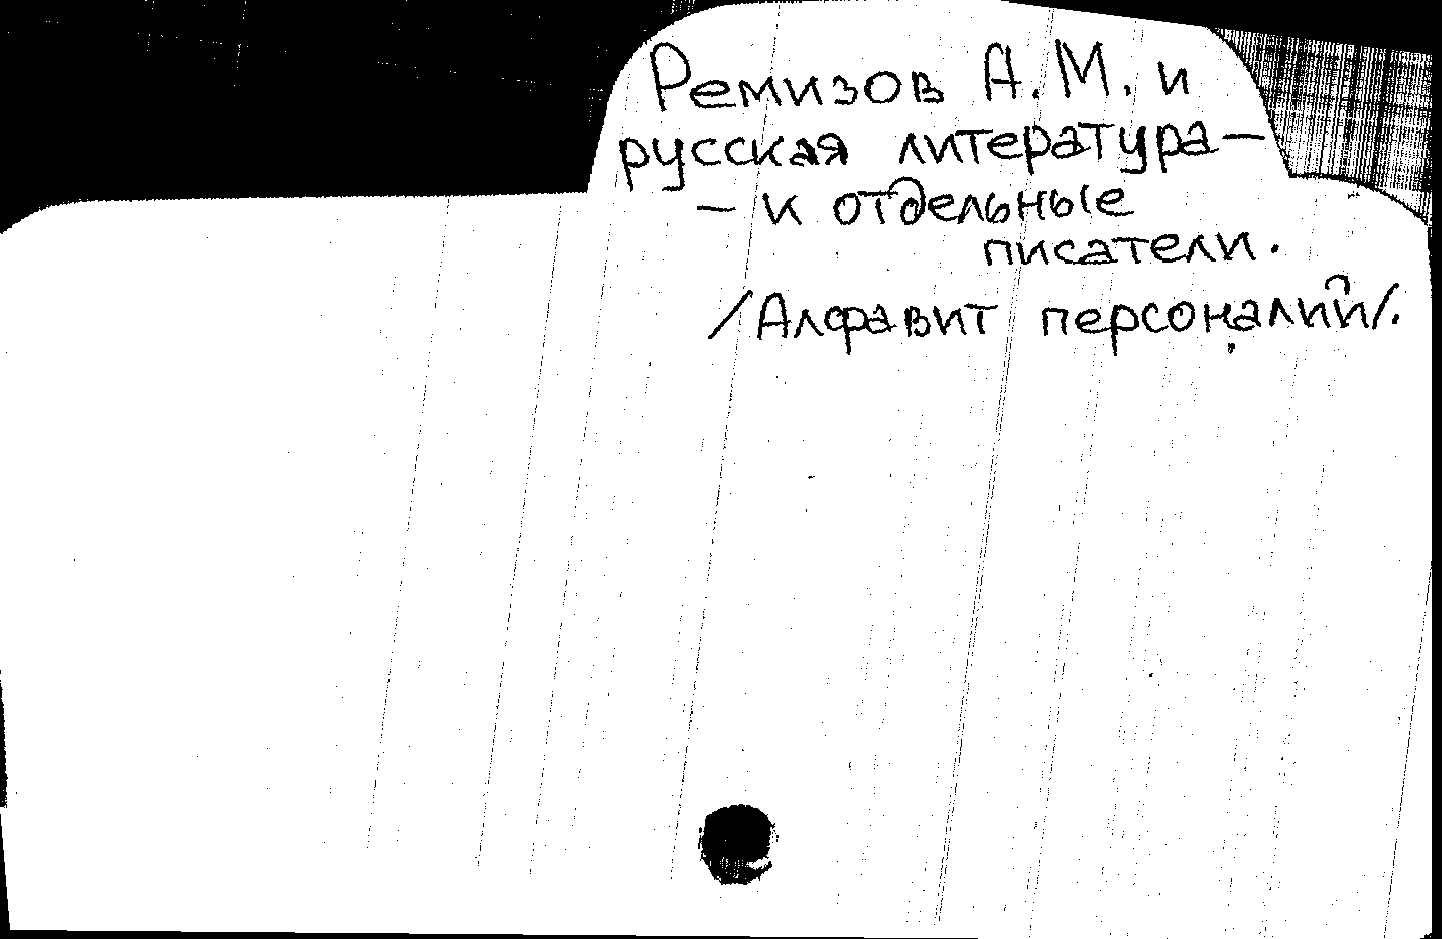 Ремизов А.М. и
русская литература –
– и отдельные
писатели.
/Алфавит персоналий/.